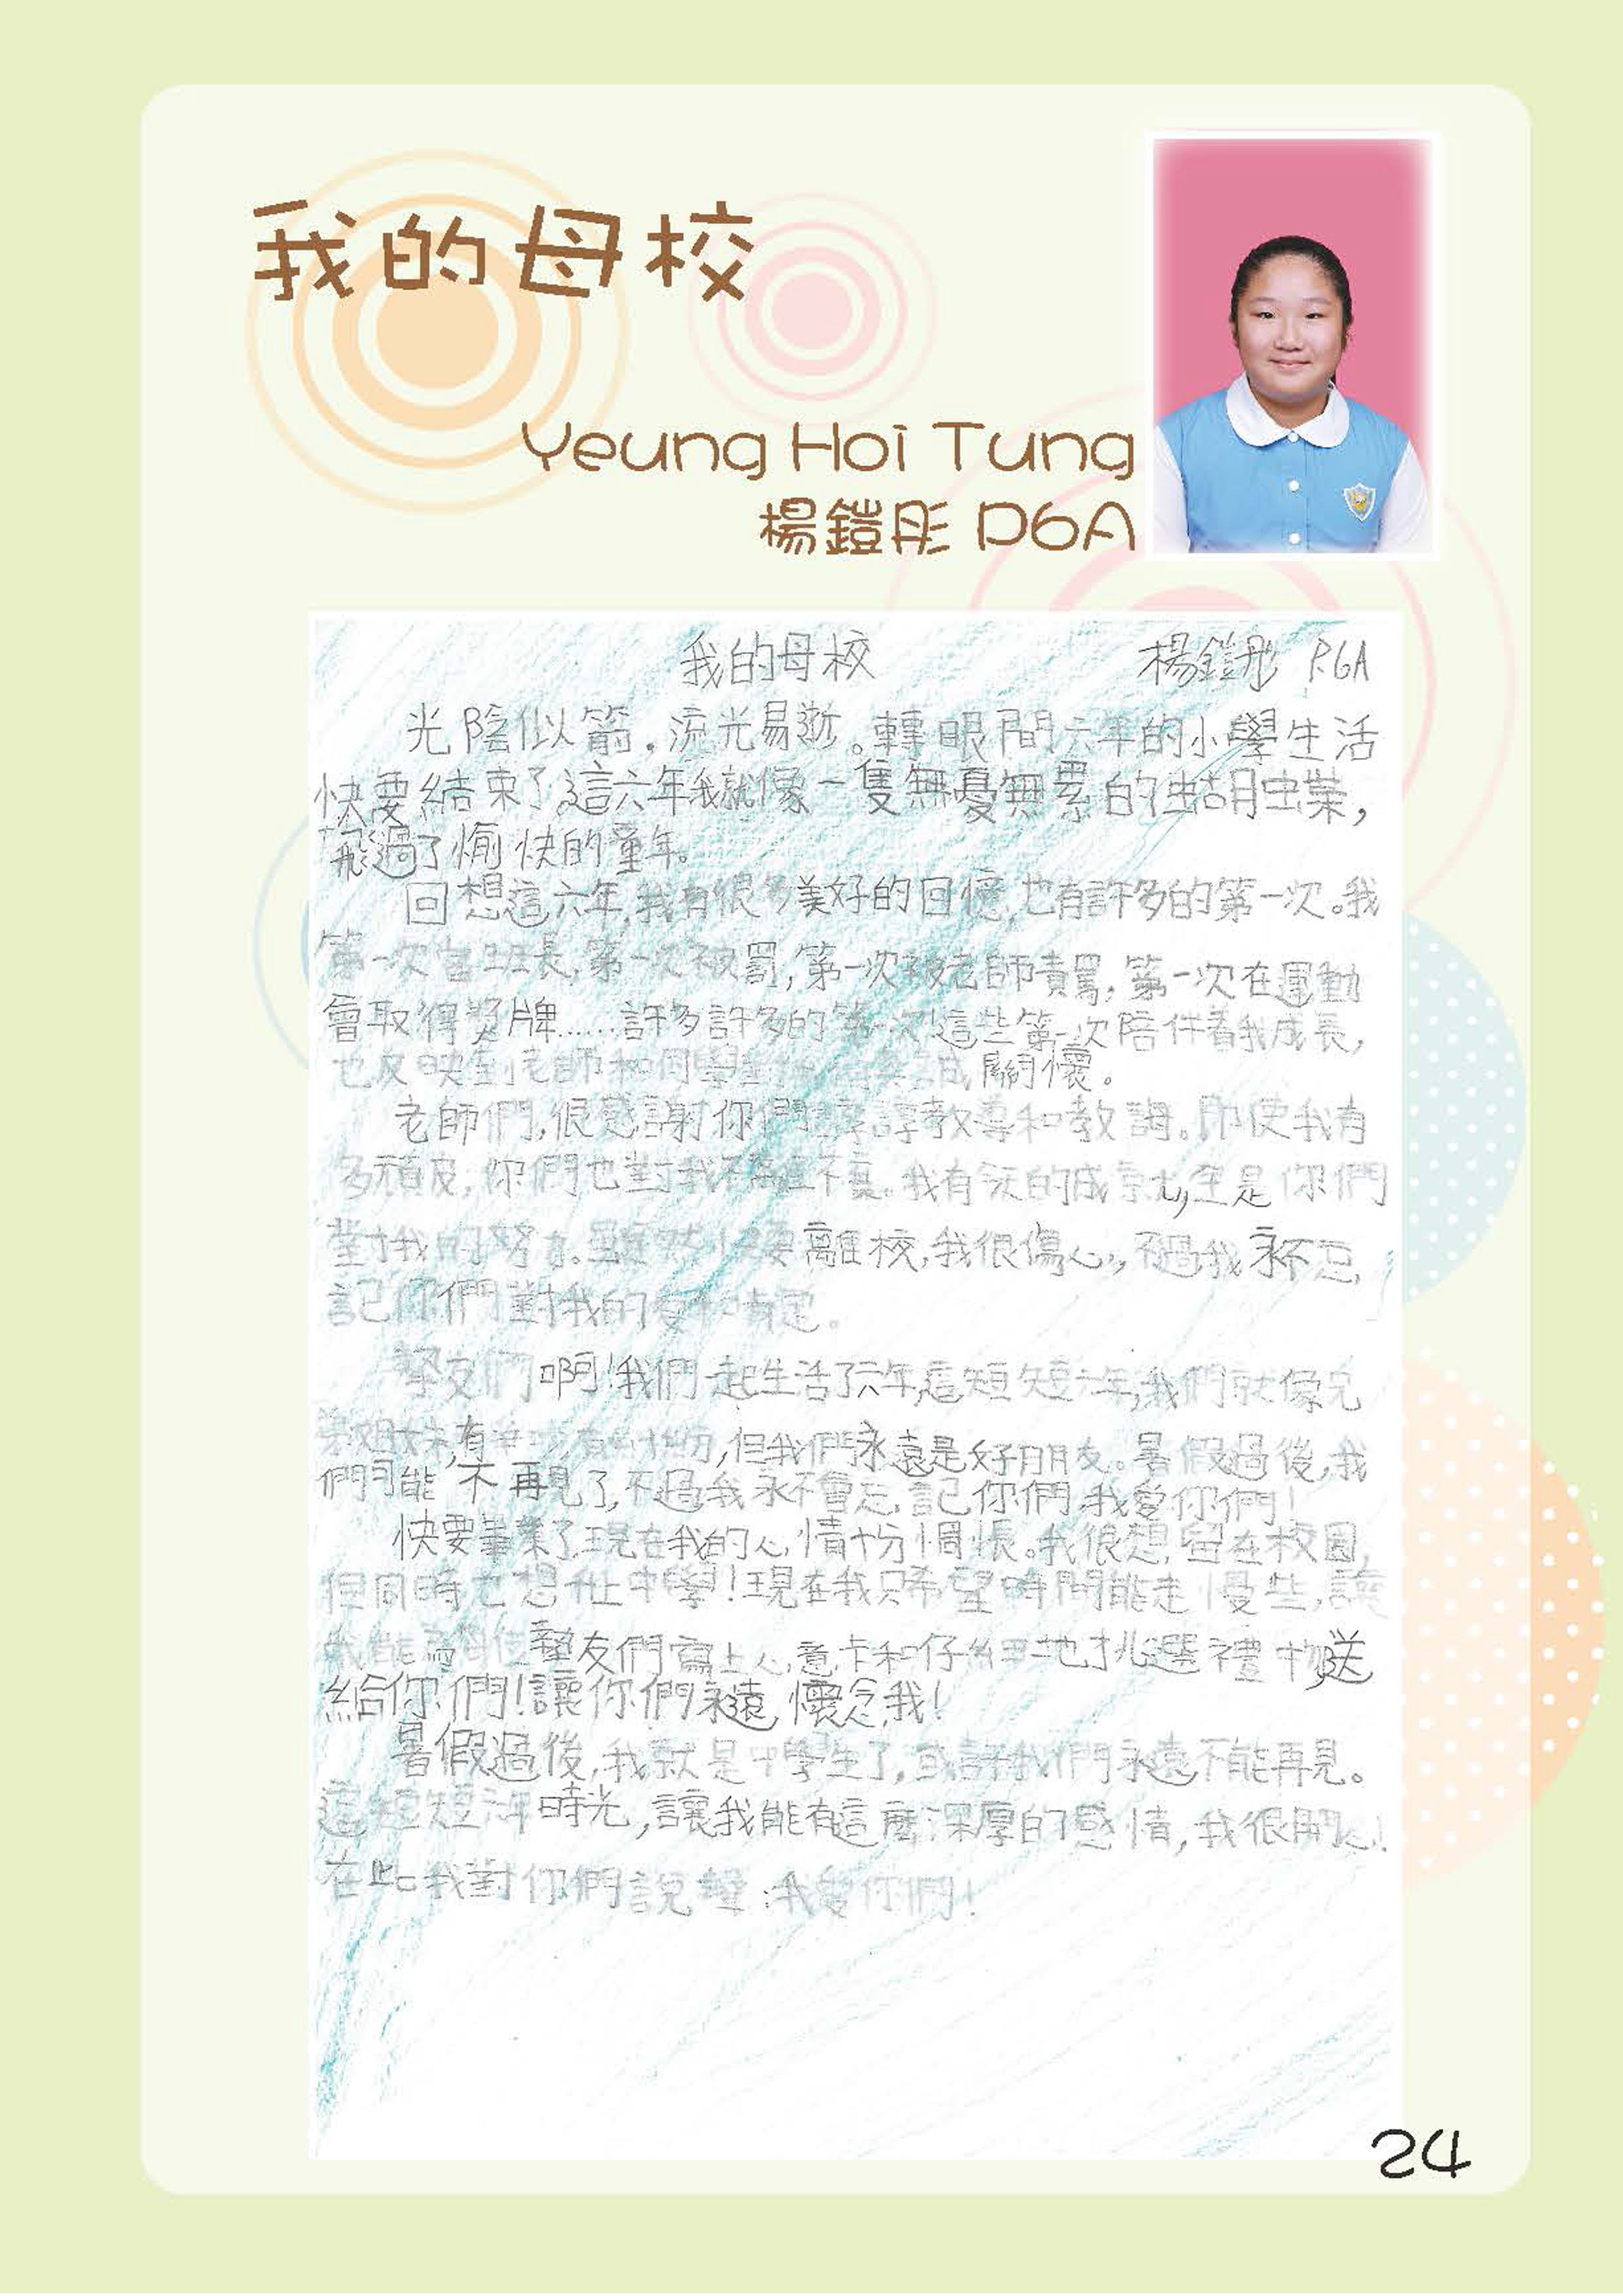 我的母校
Yeung Hoi Tung
楊鎧彤 P6A
我的母校 楊鎧彤 P.6A
光陰似箭，流光易逝。轉眼間六年的小學生活
快要結束了這六年我就像一隻無憂無累的蝴蝶，
飛過了愉快的童年。
回想這六年，我有很多美好的回憶，也有許多的第一次。我
第一次當班長，第一次被罰，第一次被老師責罵，第一次在運動
會取得獎牌……許多許多的第一次！這些第一次陪伴着我成長，
也反映到老師和同學 關懷。
老師們，很感謝你們諄諄教導和教誨。即使我有
多頑皮，你們也對我不離不棄。我有今天的成就，全是你們
對我的努力。雖然 要離校，我很傷心，不過我永不忘
記你們對我的愛和肯定。
摯友們啊！我們一起生活了六年，這短短六年，我們就像兄
弟姐妹，有 有 ，但我們永遠是好朋友。暑假過後，我
們可能不再見了，不過我永不會忘記你們，我愛你們！
快要畢業了，現在我的心情十分惆悵。我很想留在校園，
但同時也想升上中學！現在我只希望時間能走慢些，讓
我能 摯友們寫上心意卡和仔細地挑選禮物送
給你們！讓你們永遠懷念我！
暑假過後，我就是中學生了，或許我們永遠不能再見。
這短短六年時光，讓我能有這麼深厚的感情，我很開心！
在此我對你們說聲：我愛你們！
24